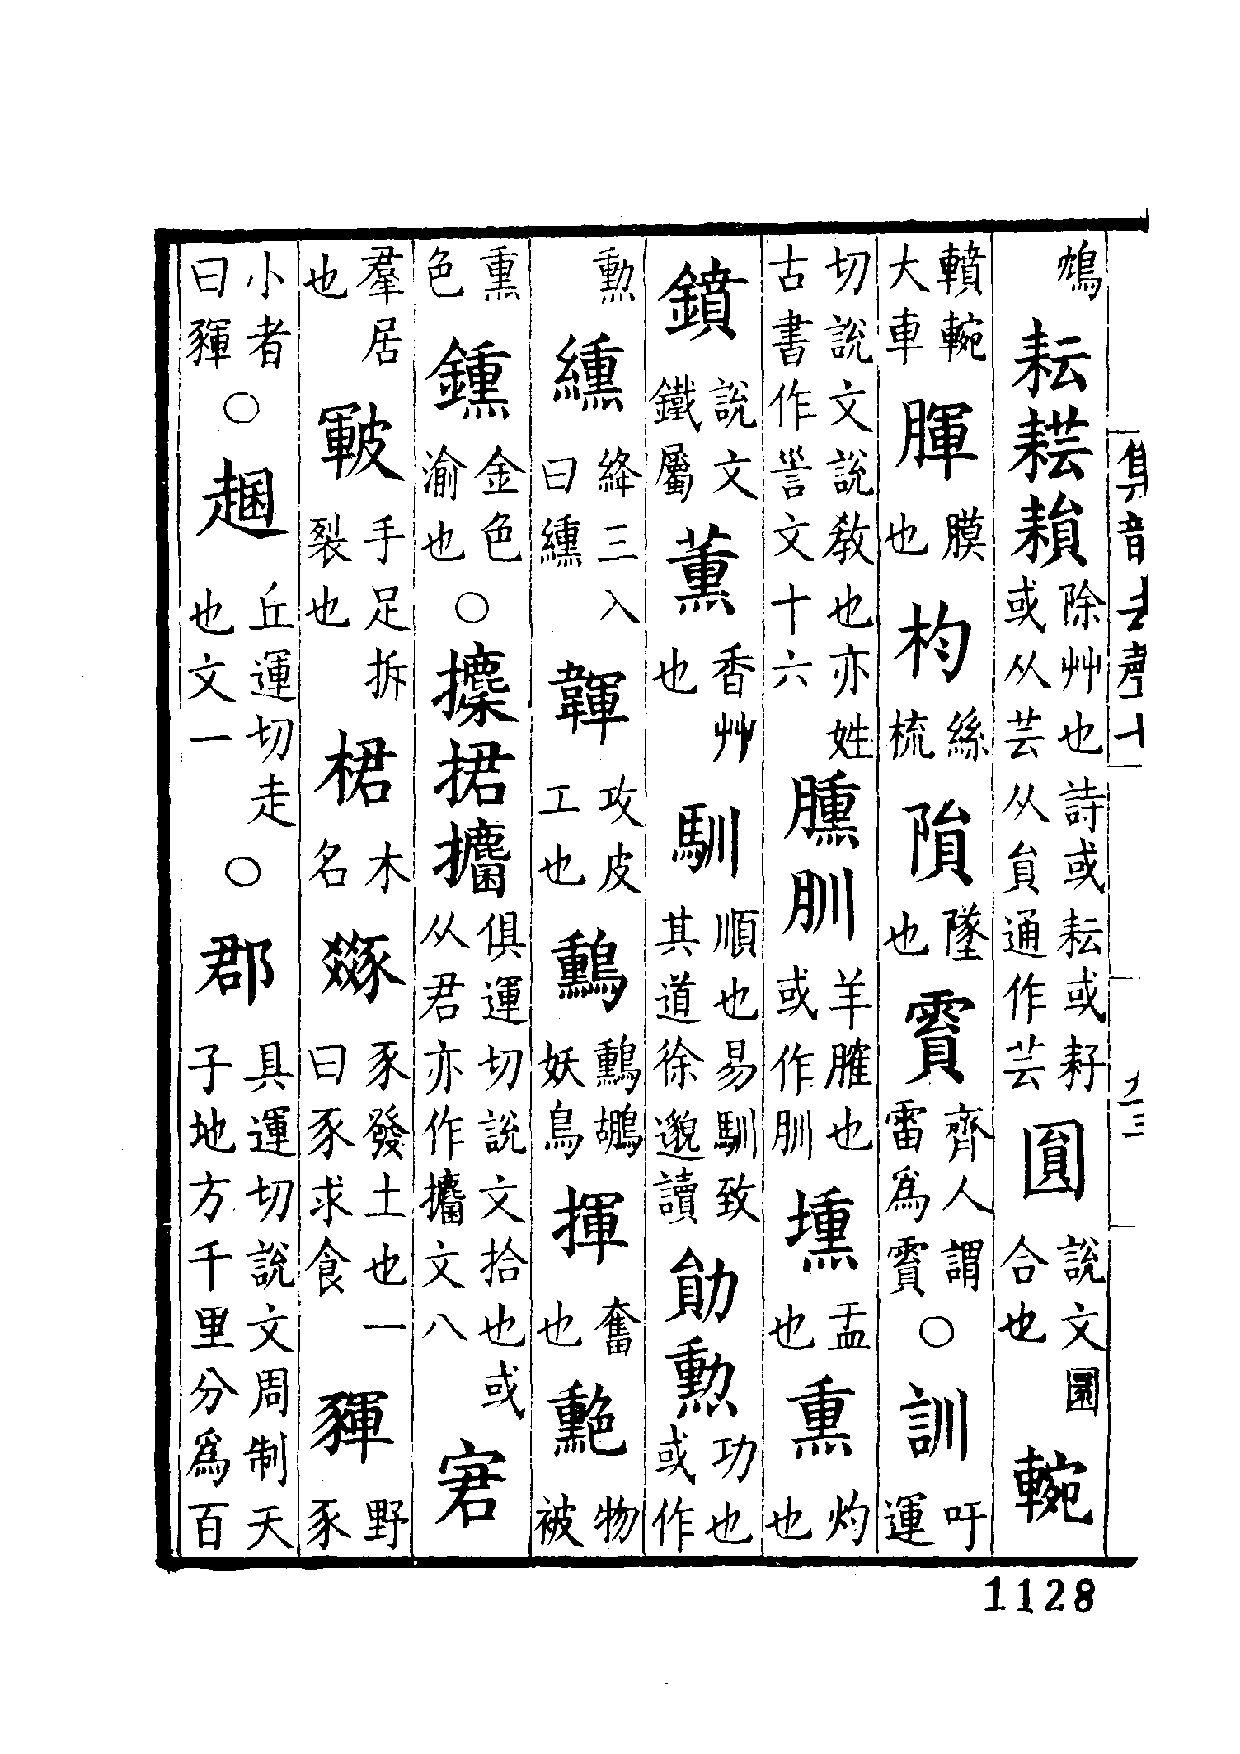 鴆耘耺䎙除艸也詩或耘或耔或从芸从員通作芸圓說文圜合也輐
轒輐大車䐊膜也枃絲梳隕墜也䨶齊人謂雷爲䨶○訓吁運
切說文說敎也亦姓古書作𧥣文十六臐䏔羊臛也或作䏔壎盂也熏灼也
鐼說文鐵屬薰香艸也馴順也易馴致其道徐邈讀勛勲功也或作
勲纁絳三入曰纁韗攻皮工也鷻鷻鶘妖鳥揮奮也㷄物被
熏色鑂金色渝也○攈捃㩈俱運切說文拾也或从君亦作㩈文八宭
羣居也皸手足拆裂也桾木名豩豕發土也一曰豕求食䝐野豕
小者曰䝐○䞫丘運切走也文一○郡具運切說文周制天子地方千里分爲百
集韻去聲七
九三
1128